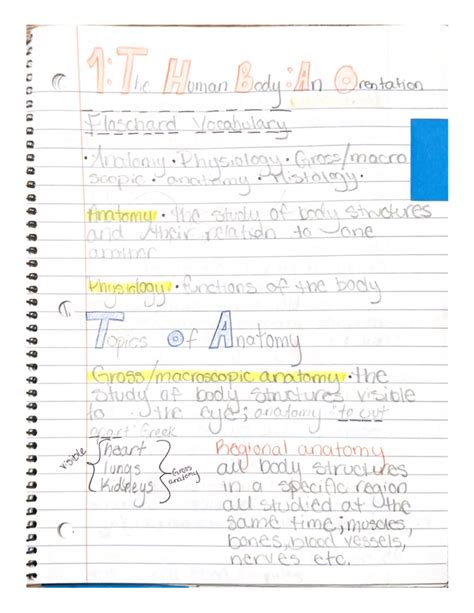 1: The Human Body: An Orentation
Flaschard Vocabulary
· Anatomy · Physiology · Gross/macro
scopic · anatomy · Histology ·
Anatomy · the study of body structures
and their relation to one
another
Physiology · functions of the body
Topics of Anatomy
Gross/macroscopic anatomy · the
study of body structures visible
to the eye; anatomy to cut
apart Greek
visible
heart
lungs
Kidneys
Gross
anatomy
Regional anatomy
all body structures
in a specific region
all studied at the
same time; muscles,
bones, blood vessels,
nerves etc.